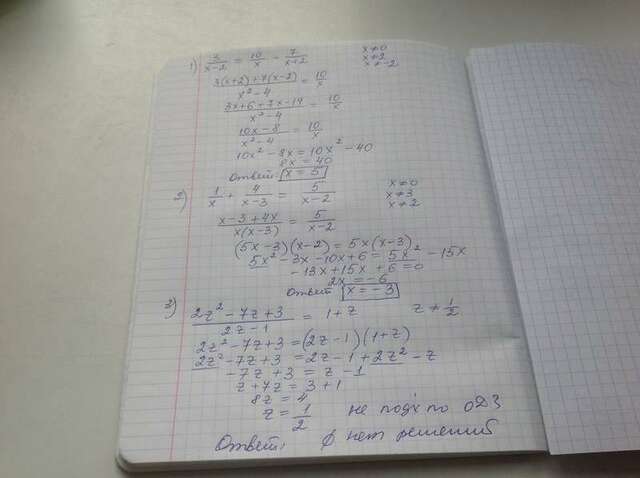 1) 3/(x-2) = 10/x - 7/(x+2)    x≠0
x≠2
x≠-2
(3(x+2)+7(x-2))/(x²-4) = 10/x
(3x+6+7x-14)/(x²-4) = 10/x
(10x-8)/(x²-4) = 10/x
10x²-8x=10x²-40
8x=40
Ответ: x=5
2) 1/x + 4/(x-3) = 5/(x-2)    x≠0
x≠3
x≠2
(x-3+4x)/(x(x-3)) = 5/(x-2)
(5x-3)(x-2)=5x(x-3)
5x²-3x-10x+6=5x²-15x
-13x+15x+6=0
2x=-6
Ответ x=-3
3) (2z²-7z+3)/(2z-1) = 1+z    z≠1/2
2z²-7z+3=(2z-1)(1+z)
2z²-7z+3=2z-1+2z²-z
-7z+3=z-1
z+7z=3+1
8z=4
z=1/2    не подх по ОДЗ
Ответ: ∅ нет решений